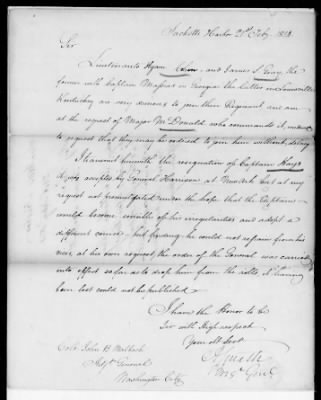 Sacketts Harbor 21st Feby. 1818
Sir
Lieutenants Hyam Cohen, and James S Gray, the
former with Captain Massias in Georgia the latter in Louisville
Kentucky are very anxious to join their Regiment and am
at the request of Major McDonald who commands it,
to request that they may be ordered to join them without delay
I transmit herewith the resignation of Captain Hays
it was accepted by General Harrison at Newark but at my
request not promulgated under the hope that the Captain
would become sensible of his irregularities and adopt a
different course: but finding he could not refrain from his
vices, at his own request, the order of the General was carried
into effect so far as to drop him from the rolls it having
been lost could not be published
I have the Honor to be
Sir with High respect
Your obt Servt
Colo. John B Walbach
Adjt. General
Washington City